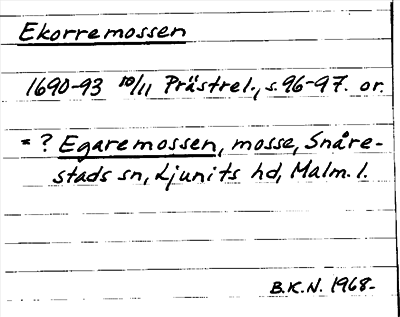 Ekorremossen
1690-93 10/11 Prästrel., s. 96-97. or.
= ? Egaremossen, mosse, Snåre-
stads sn, Ljunits hd, Malm. l.
B.K.N. 1968-